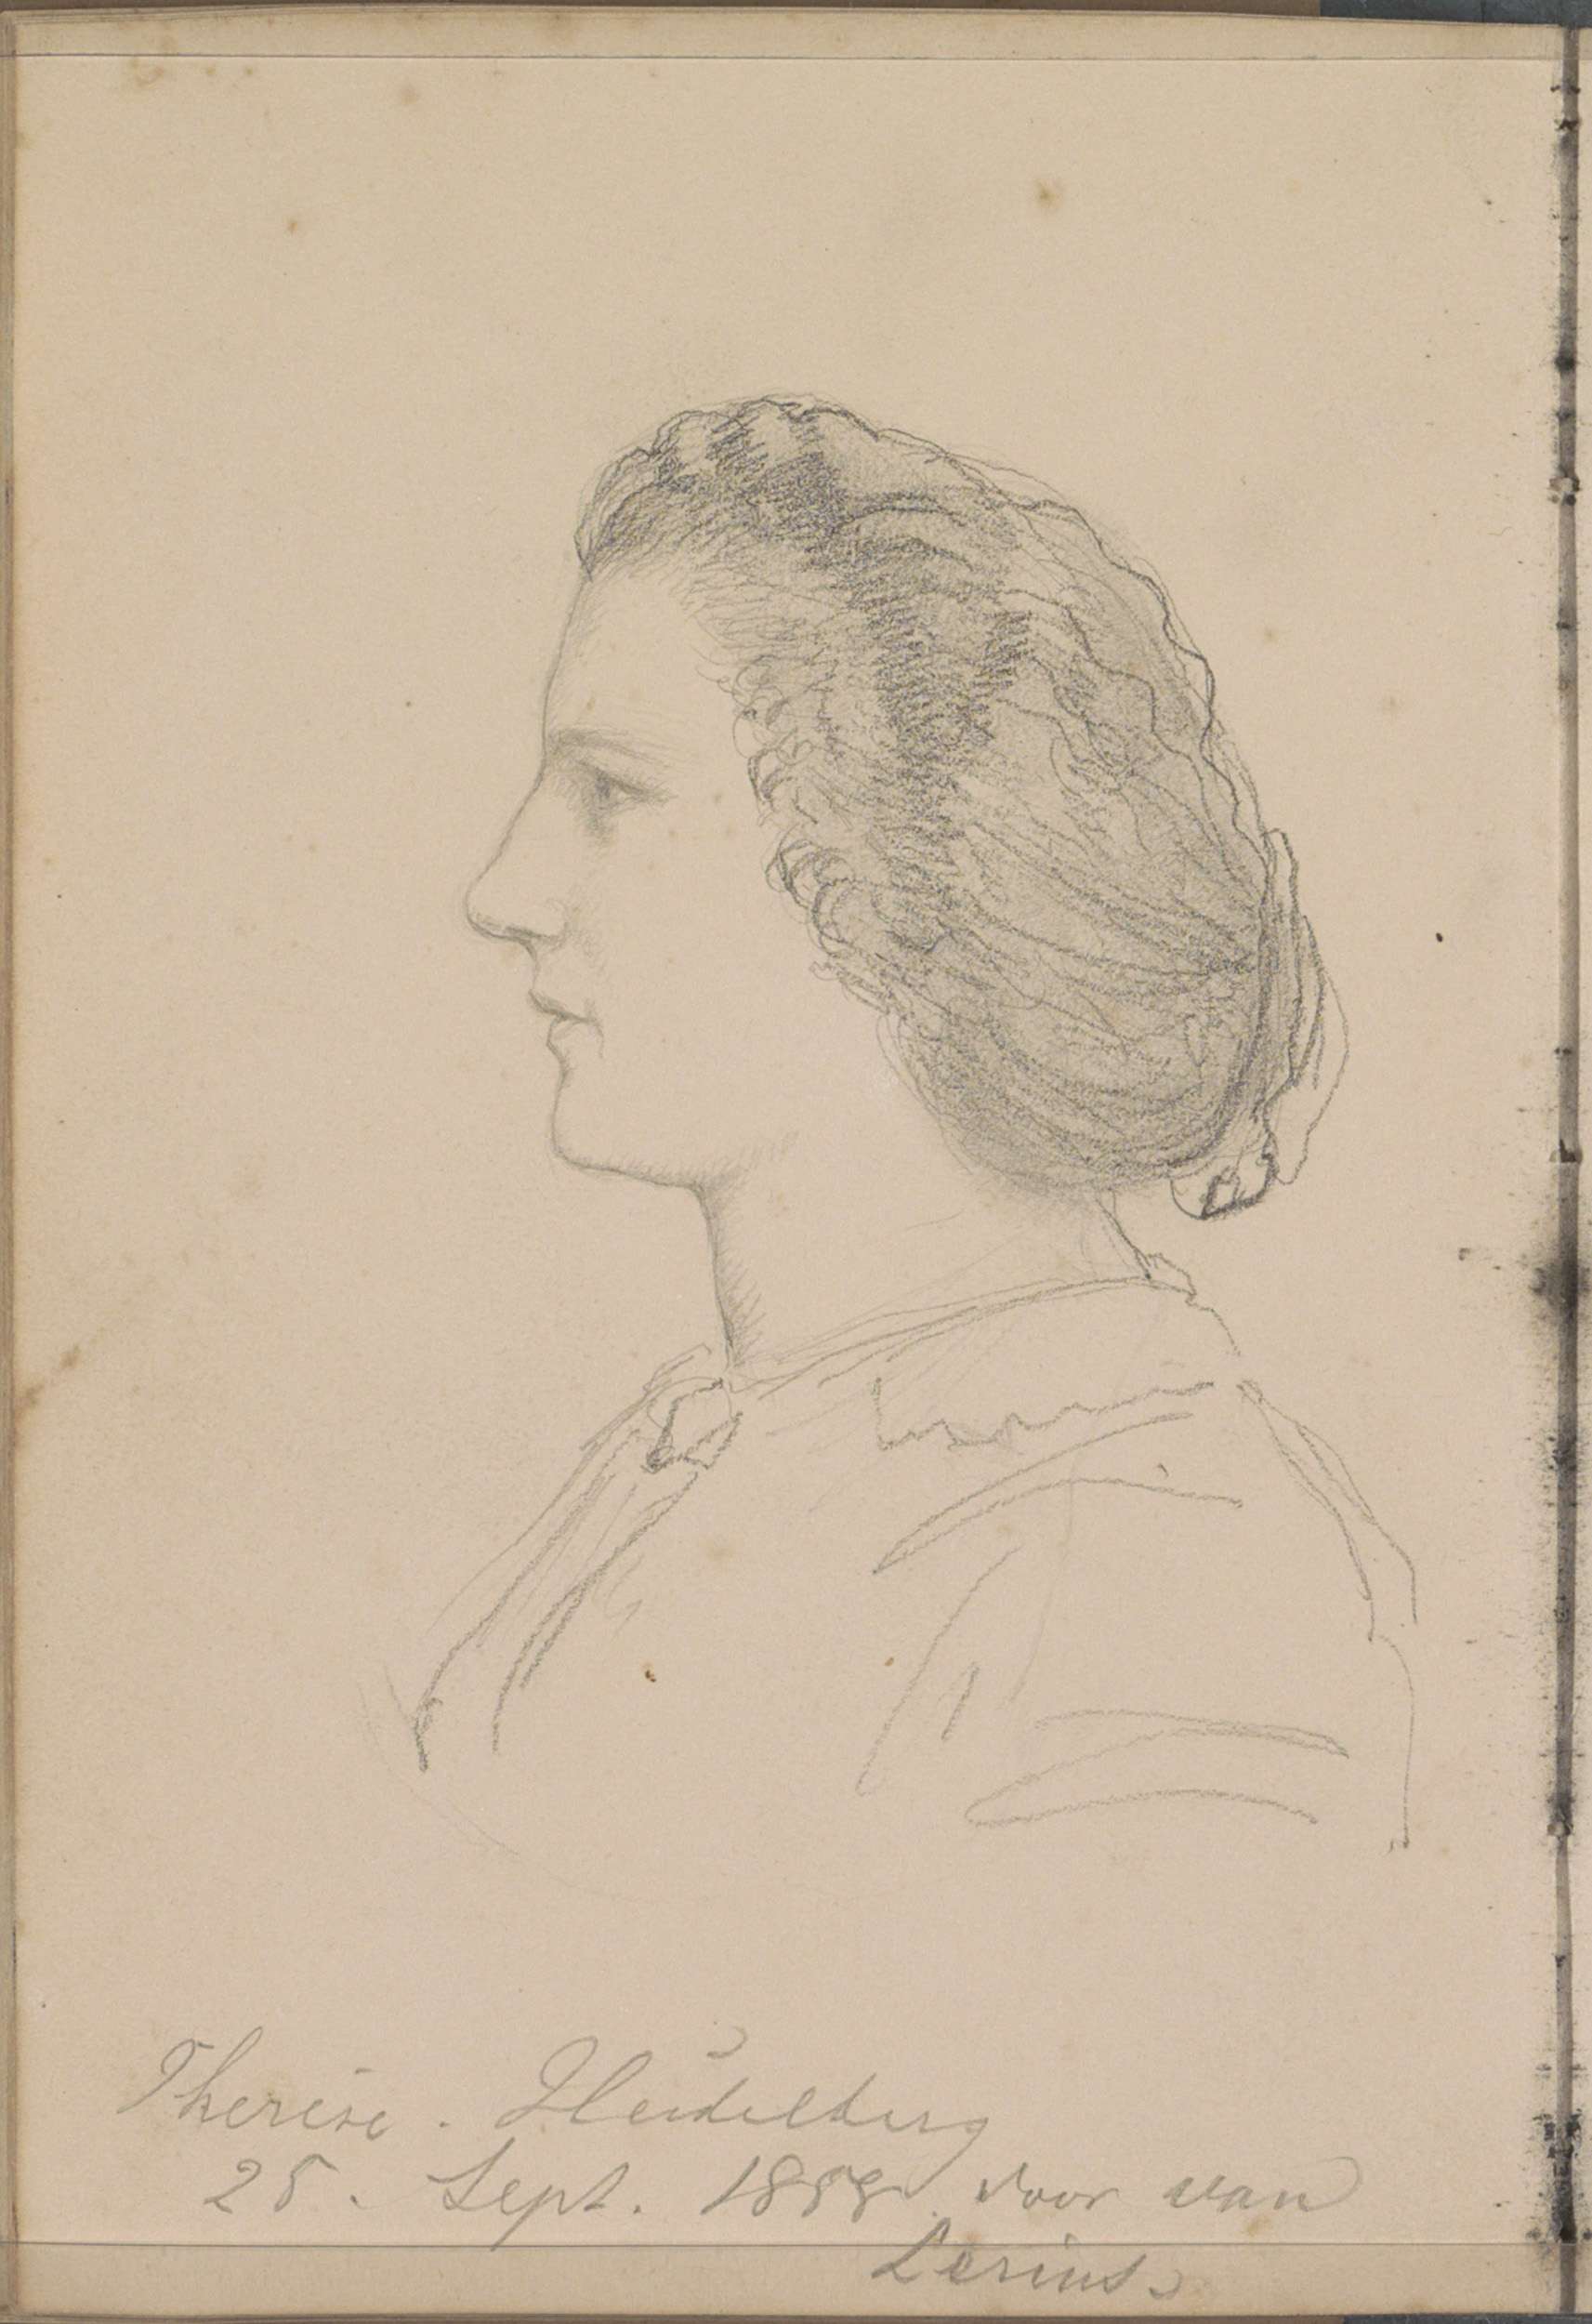 Therese. Heidelberg
25. Sept. 1858 door van
Lerius.